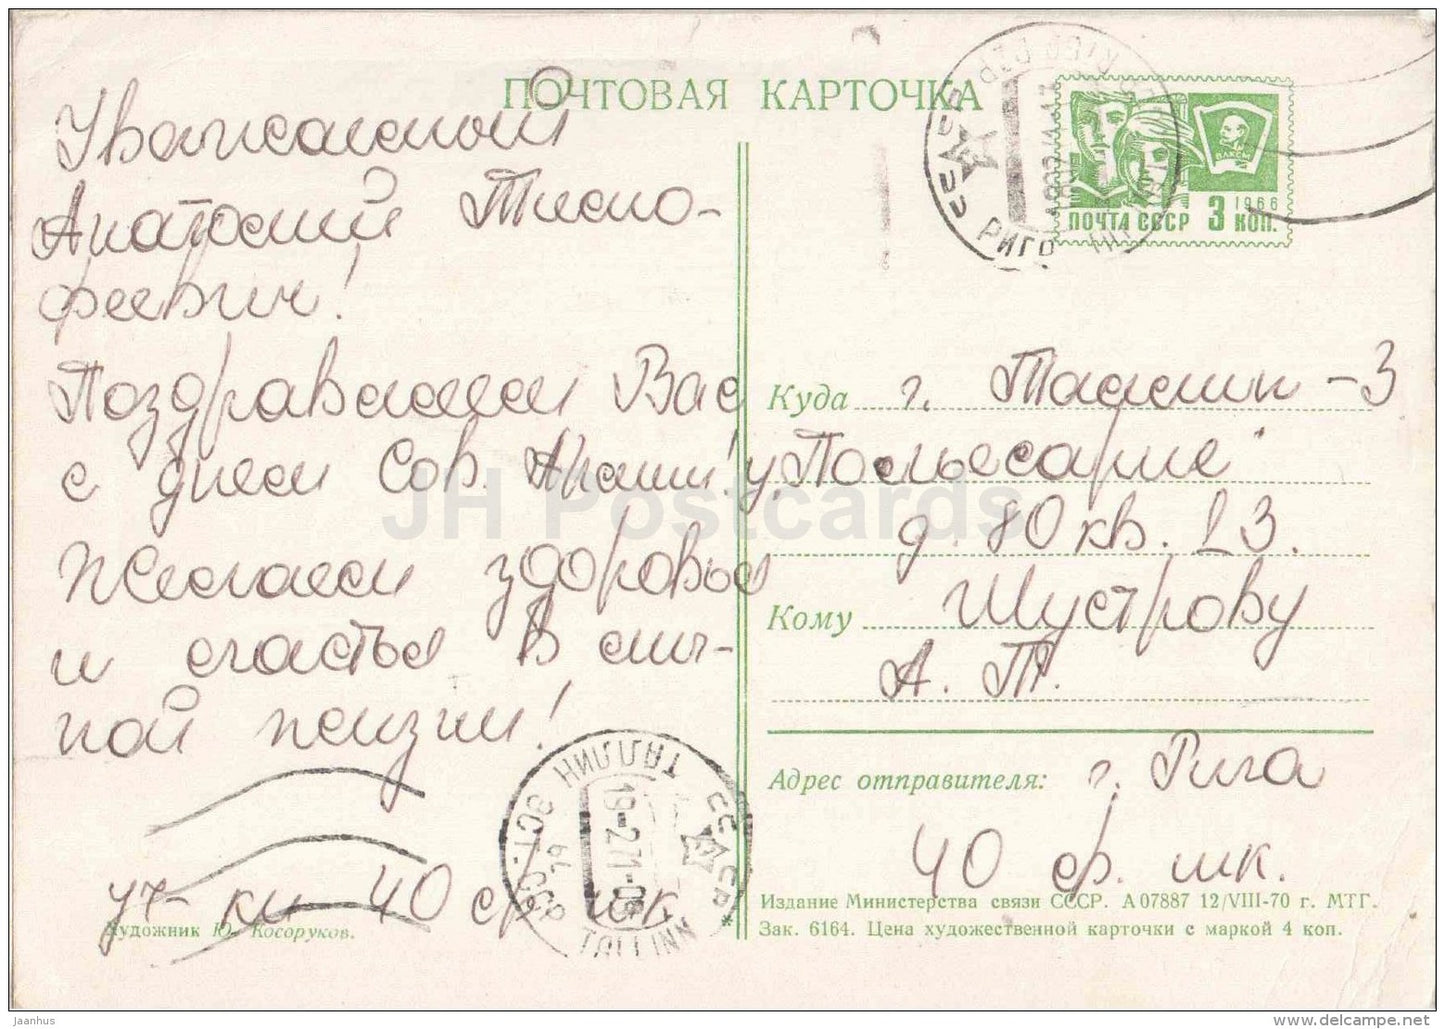 ПОЧТОВАЯ КАРТОЧКА
Уважаемый
Анатолий Тимо-
феевич!
Поздравляем Вас
с днем Сов. Армии!
Желаем здоровья
и счастья в лич-
ной жизни!
уч-ки 40 ср. шк.
Художник Ю. Косоруков.
СССР
РИГА
ВЛКСМ
1966
ПОЧТА СССР 3 КОП.
Куда г. Таллин-3
у. Пальясааре
д. 80 кв. 23.
Кому Шустрову
А. Т.
Адрес отправителя: г. Рига
40 ср. шк.
Издание Министерства связи СССР. А 07887 12/VIII-70 г. МТГ.
Зак. 6164. Цена художественной карточки с маркой 4 коп.
ТАЛЛИН ЭСТ. ССР
СССР
19-271-08
TALLINN
JH Postcards
Jaanhus
delcampe.net